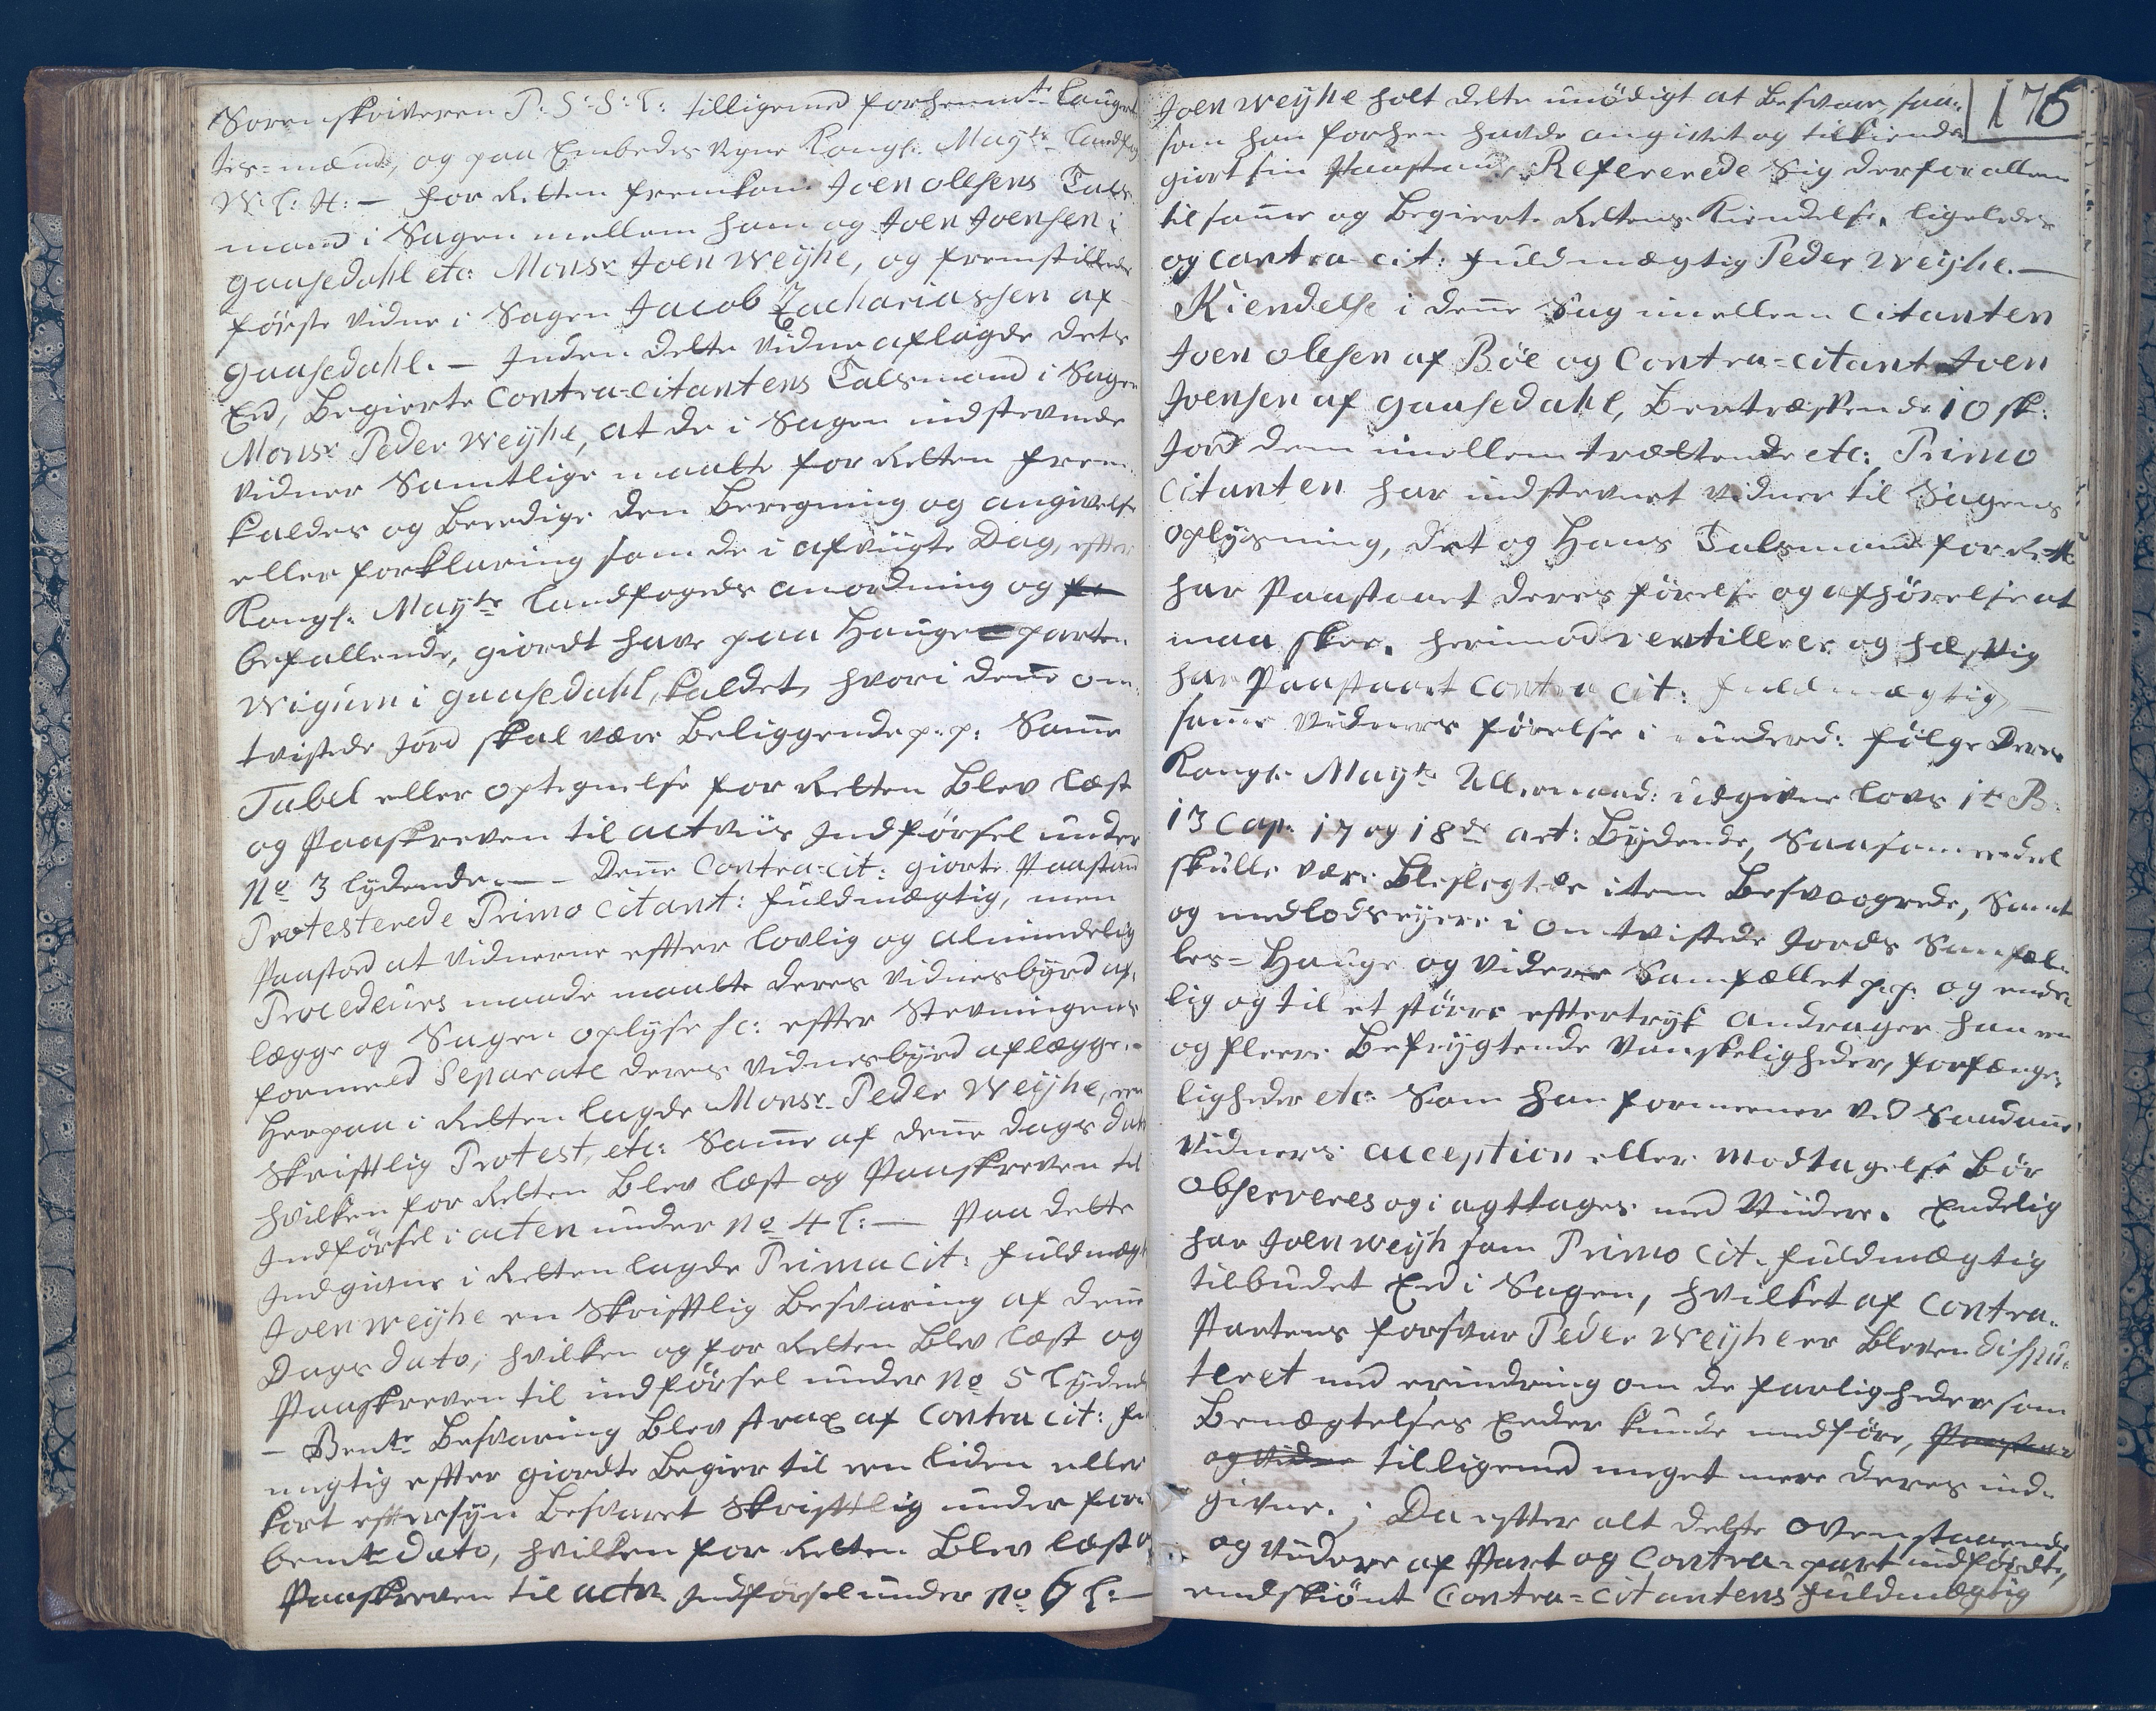 Sorenskriveren P: S: S: L: tilligemed forhenn^te Laugret
tes-mænd, og paa Embeds vegne Kongl. May^ts Landfog
W: L: H: — for Retten fremkom Joen Olesens Tals
mand i Sagen mellem ham og Joen Joensen i
Gaasedahl etc: Mons^r Joen Weyhe, og fremstillede
første vidne i Sagen Jacob Zachariassen af
Gaasedahl. — Inden dette vidne aflagde dets
Eed, begierte Contra-Citantens Talsmand i Sagen
Mons^r Peder Weyhe, at de i Sagen indstevnede
vidner samtlige maatte for Retten frem
kaldes og beedige den beregning og angivelse
eller forklaring som de i afvigte Dag, efter
Kongl. May^ts Landfogeds anordning og
befallende, giordt have paa Hauge parten
Wigum i Gaasedahl, kaldet, hvori denne om
tvistede Jord skal være beliggende p. p: Samme
Tabel eller optegnelse for Retten blev læst
og Paaskreven til actens Indførsel under
N^o 3 lydende — Denne Contra-cit: giorte Paastand
Protesterede Primo Citant: fuldmægtig, men
Paastod at vidnerne effter lovlig og almindelig
Procedeurs maade maatte deres vidnesbyrd af-
lægge og Sagen oplyse sc: effter Stevningens
formeld Separate deres vidnesbyrd aflægge. -
Herpaa i Retten lagde Mons^r Peder Weyhe, en
Skrifftlig Protest, etc: Samme af denne dags dato
hvilken for Retten blev læst og Paaskreven til
Indførsel i acten under N^o 4 l: — Paa dette
Indgivne i Retten lagde Prima Cit: fuldmægt
Joen Weyhe en Skrifftlig besvaring af denne
Dags dato, hvilken og for Retten blev læst og
Paaskreven til indførsel under N^o 5 lydende
— Bem^te besvaring blev strax af Contra cit: ful
mægtig effter giordte begier til een liden eller
kort effttersyn besvaret skrifftlig under for-
bem^te dato, hvilken for Retten blev læst og
Paaskreven til actens Indførsel under N^o 6 l: —
176
Joen Weyhe holt dette unødigt at besvare, saa-
som han forhen havde angivet og tilkiende
giort sin Paastand, Refererede sig derfor allene
til samme og begierte Rettens Kiendelse, ligeledes
og Contra-cit: fuldmægtig Peder Weyhe. —
Kiendelse i denne Sag imellem Citanten
Joen Olesen af Bøe og Contra-citant Joen
Joensen af Gaasedahl, Betræffende 10 sk:
Jord dem imellem trættende etc: Primo
Citanten har indstevnet vidner til Sagens
oplysning, det og Hans Talsmand for Rette
har Paastaaet deres førelse og afhørelse at
maa skee. herimod ventillerer og hæfftig
har Paastaaet Contra Cit: fuldmægtig
samme vidners førelse i underd: følge Deres
Kongl. May^ts Allernaad: udgivne Lovs 1^te B:
13 Cap. 17 og 18^de art: Bydende, Saasom endeel
skulle være beslegtede item besvogrede, samt
og medlodseyere i om tvistede Jords Samfæl-
les-Hauge og videre Samfællet p. p. og ende
lig og til et større effttertryk andrager han een
og fleere befrygtende vanskeligheder, forfænge-
ligheder etc: Som han formeener ved Saadanne
vidners acception eller modtagelse bør
observeres og i agttages med videre. Endelig
har Joen Weyh som Primo Cit. fuldmægtig
tilbudet Eed i Sagen, hvilket af Contra-
Partens forsvar Peder Weyhe er bleven dispu-
teret med erindring om de farligheder som
Benægtelses Eeder kunde medføre, Paastaar
og vidne tilligemed meget mere deres ind-
givne. ; Da effter alt dette ovenstaaende
og videre af Part og Contra-part indførdte,
endskiønt Contra-citantens fuldmægtig